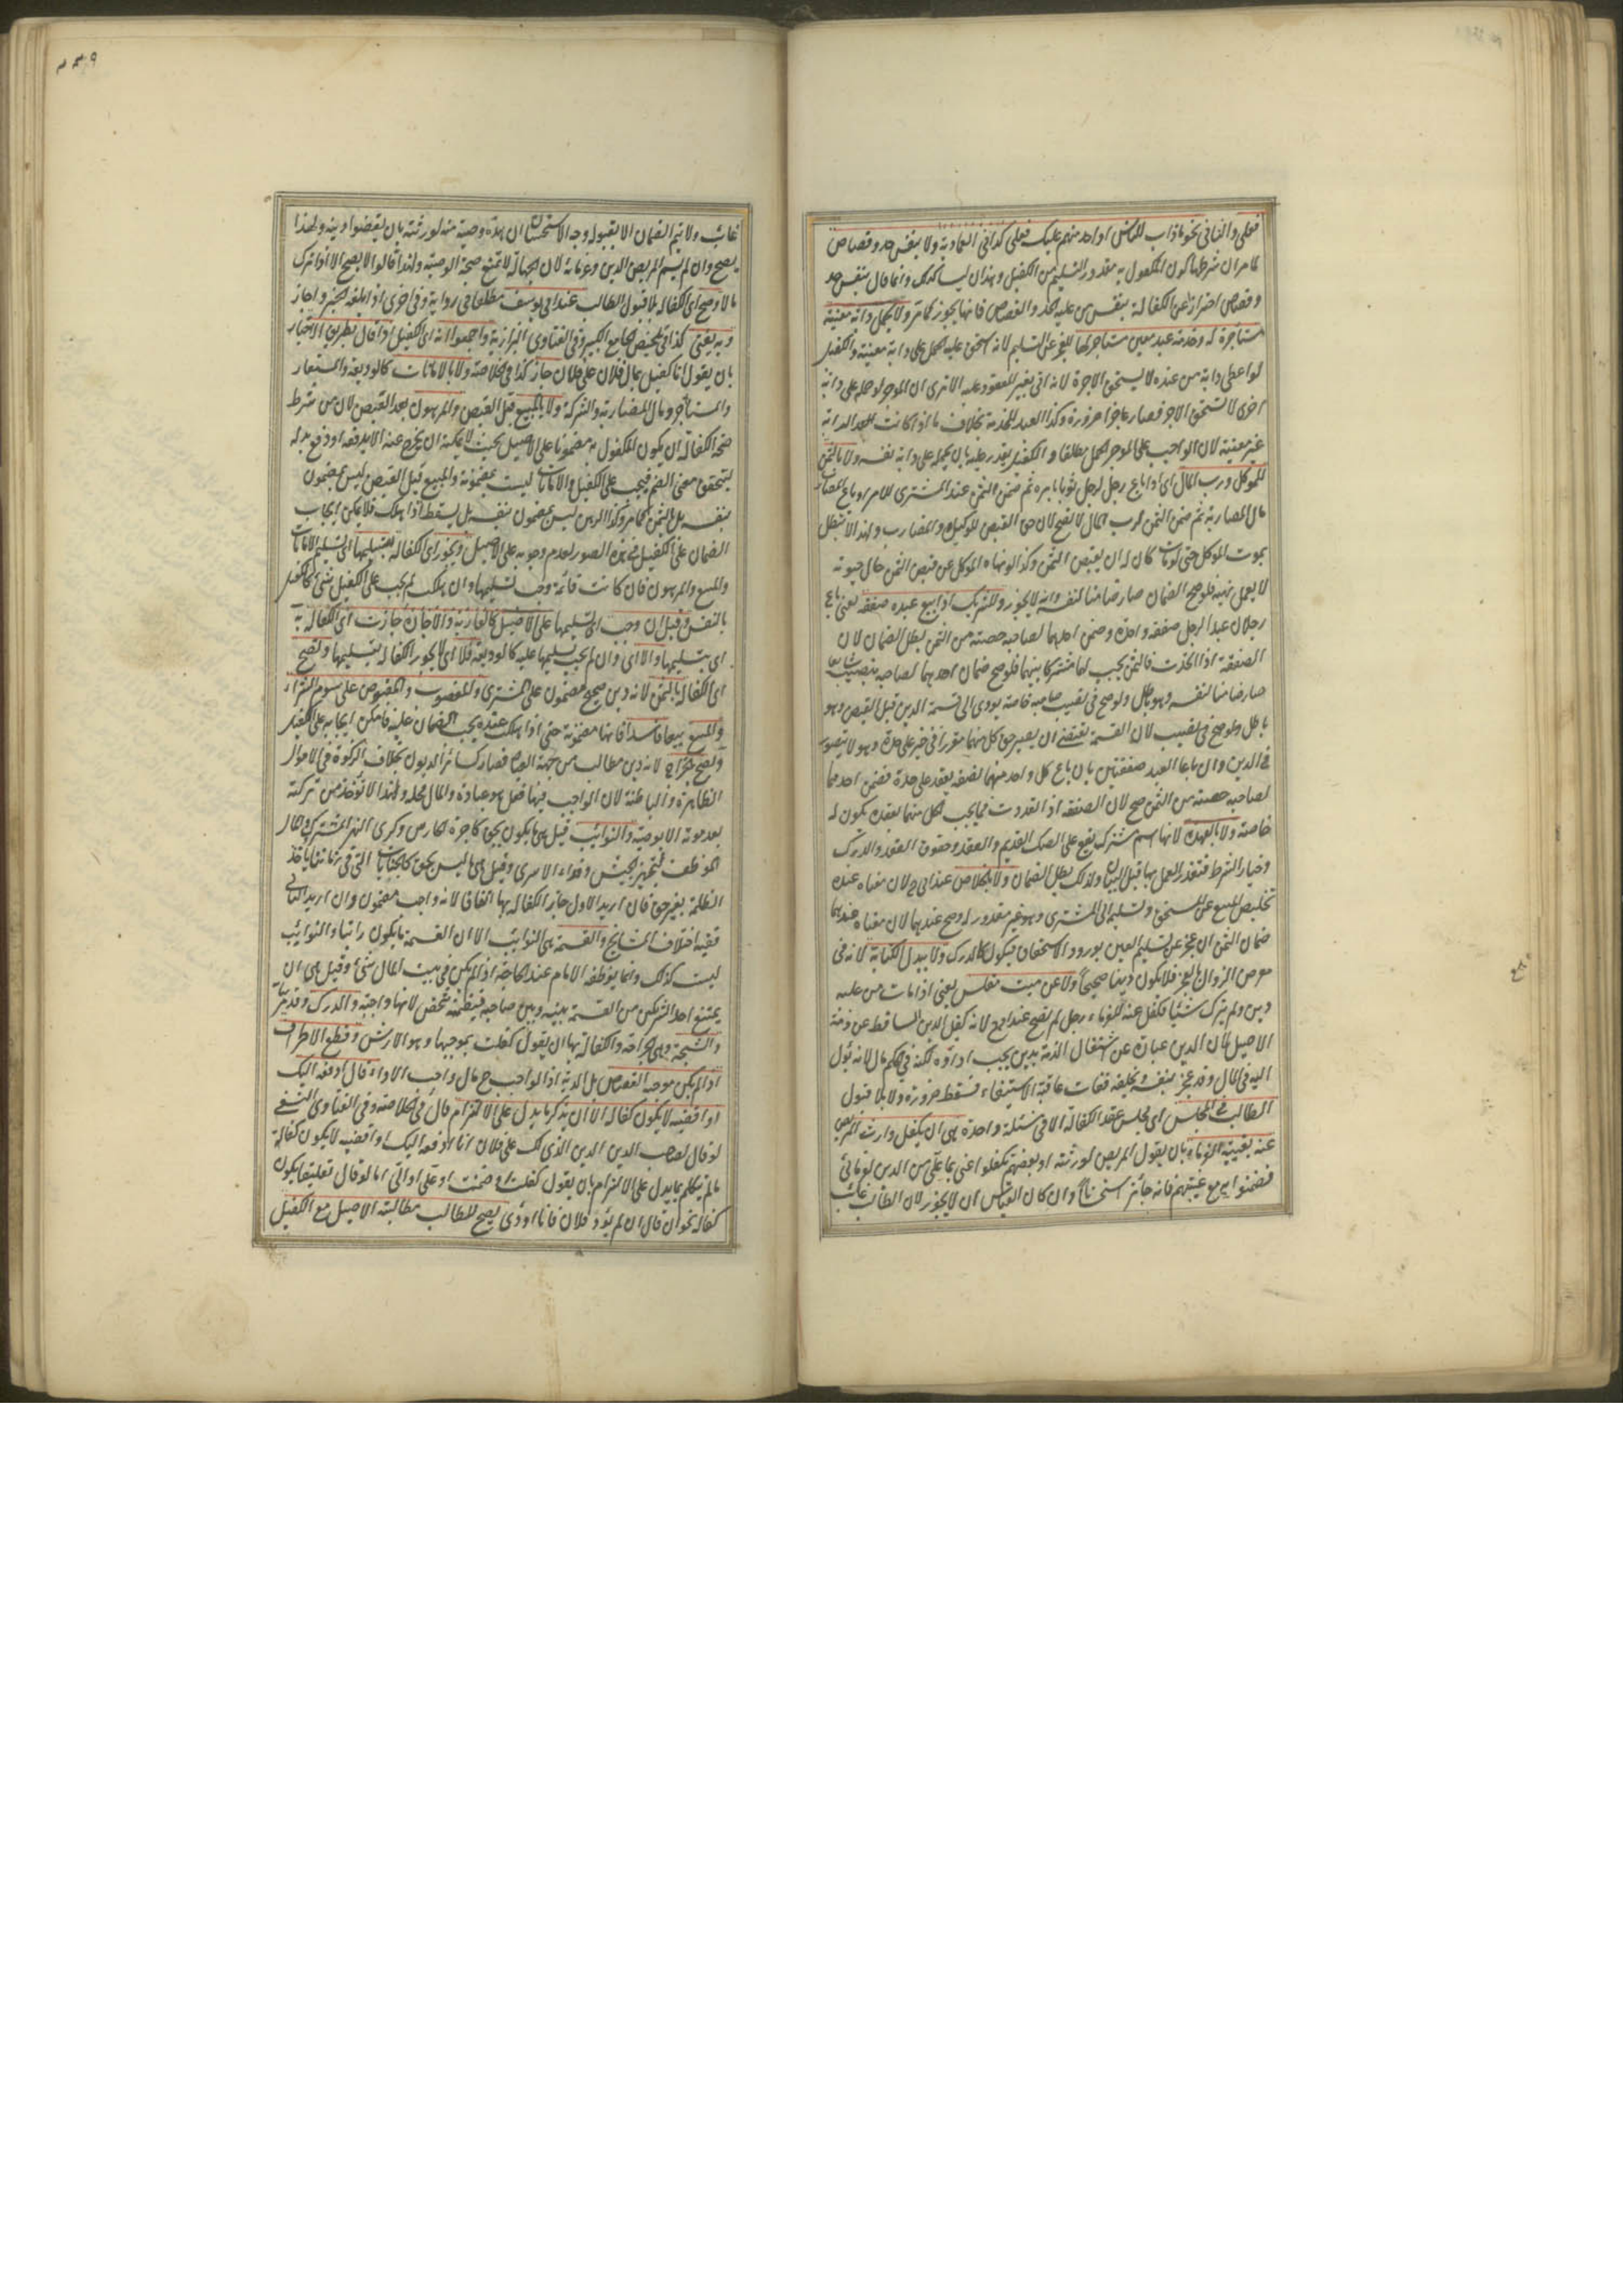 فعلي والثاني نحو ما ذاب للناس او احد منهم عليك فعلي كذا في العمادية ولا بنفس حد وقصاص
لما مر ان شرطها كون المكفول به مقدور التسليم من الكفيل وهذان ليسا كذلك وانما قال بنفس حد
وقصاص احترازا عن الكفالة بنفس من عليه الحد والقصاص فانها يجوز كما مر ولا بحمل دابة معينة
مستأجرة له وخدمة عبد معين مستأجر لها للعجز عن التسليم لانه استحق عليه الحمل على دابة معينة والكفيل
لو اعطى دابة من عنده لا يستحق الاجرة لانه اتى بغير المعقود عليه الا ترى ان الموجر لو حمله على دابة
اخرى لا تستحق الاجر فصار عاجزا ضرورة وكذا العبد للخدمة بخلاف ما اذا كانت الدابة
غير معينة لان الواجب على الموجر الحمل مطلقا والكفيل يقدر عليه بان يحمله على دابة نفسه ولا بالثمن
للموكل ورب المال اي اذا باع رجل لرجل ثوبا بامره ثم ضمن الثمن عند المشتري للامر او باع المضارب
مال المضاربة ثم ضمن الثمن لرب المال لا تصح لان حق القبض للوكيل والمضارب ولهذا لا تبطل
بموت الموكل حتى لو مات كان له ان يقبض الثمن وكذا لو نهاه الموكل عن قبض الثمن حال حيوته
لا يعمل نهيه فلو صح الضمان صار ضامنا لنفسه وانه لا يجوز وللشريك اذا بيع عبده صفقة يعني باع
رجلان عبدا لرجل صفقة واحدة وضمن احدهما لصاحبه حصته من الثمن بطل الضمان لان
الصفقة اذا اتحدت فالثمن يجب لهما مشتركا بينهما فلو صح ضمان احدهما لصاحبه بنصيب شايعا
صار ضامنا لنفسه وهو باطل ولو صح في نصيب صاحبه خاصة يودي الى قسمة الدين قبل القبض وهو
باطل ولو صح في نصيب لان القسمة تقتضي ان يصير حق كل منهما مفرزا في حيز على حدة وهو لا يتصور
في الدين وان باعا العبد صفقتين بان باع كل واحد منهما نصفه بعقد على حدة فضمن احدهما
لصاحبه حصته من الثمن صح لان الصفقة اذا تعددت فما يجب لكل منهما بعقده يكون له
خاصة ولا بالعهدة لانها اسم مشترك يقع على الصك القديم والعقد وحقوق العقد والدرك
وخيار الشرط فتعذر العمل بها قبل البيان ولذلك بطل الضمان ولا بالخلاص عند ابي ح لان معناه عنده
تخليص المبيع عن المستحق وتسليمه الى المشتري وهو غير مقدور له وصح عندهما لان معناه عندهما
ضمان الثمن ان عجز عن تسليم العين بورود الاستحقاق فيكون كالدرك ولا ببدل الكتابة لانه في
معرض الزوال بالعجز فلا يكون دينا صحيحا ولا عن ميت مفلس يعني اذا مات من عليه
دين ولم يترك شيئا فكفل عنه للغرماء رجل لم تصح عند ابي ح لانه كفل بدين ساقط عن ذمة
الاصيل لان الدين عبارة عن اشتغال الذمة بدين يجب اداؤه لكنه في الحكم مال لانه يؤل
اليه في المال وقد عجز بنفسه وبخلفه ففات عاقبة الاستيفاء فسقط ضرورة ولا بلا قبول
الطالب في المجلس اي مجلس عقد الكفالة الا في مسئلة واحدة هي ان يكفل وارث المريض
عنه بغيبة الغرماء بان يقول المريض لورثته او بعضهم تكفلوا عني بما علي من الدين لغرمائي
فضمنوا به مع غيبتهم فانه جائز استحسانا وان كان القياس ان لا يجوز لان الطالب غائب
غائب ولا يتم الضمان الا بقبوله وجه الاستحسان ان هذه وصية منه لورثته بان يقضوا دينه ولهذا
يصح وان لم يسم المريض الدين وغرمائه لان الجهالة لا تمنع صحة الوصية ولهذا قالوا لا يصح الا اذا ترك
مالا وصح اي الكفالة بلا قبول الطالب عند ابي يوسف مطلقا في رواية وفي اخرى اذا بلغه الخبر واجاز
وبه يفتى كذا في تلخيص الجامع الكبير وفي الفتاوى البزازية واجمعوا انه اي الكفيل اذا قال بطريق الاخبار
بان يقول انا كفيل بمال فلان على فلان جاز كذا في الخلاصة ولا بالامانات كالوديعة والمستعار
والمستأجر ومال المضاربة والشركة ولا بالمبيع قبل القبض والمرهون بعد القبض لان من شرط
صحة الكفالة ان يكون المكفول به مضمونا على الاصيل بحيث لا يمكنه ان يخرج عنه الا بدفعه او دفع بدله
ليتحقق معنى الضم فيجب على الكفيل والامانات ليست بمضمونة والمبيع قبل القبض ليس بمضمون
بنفسه بل بالثمن كما مر وكذا الرهن ليس بمضمون بنفسه بل يسقط اذا هلك فلا يمكن ايجاب
الضمان على الكفيل في هذه الصور لعدم وجوبه على الاصيل ويجوز اي الكفالة بتسليمها اي تسليم الامانات
والمبيع والمرهون فان كانت قائمة وجب تسليمها وان هلكت لم يجب على الكفيل شيء كالكفيل
بالنفس وقيل ان وجب اي تسليمها على الاصيل كالعارية والاجارة جازت اي الكفالة به
اي بتسليمها والا اي وان لم يجب تسليمها عليه كالوديعة فلا اي لا يجوز الكفالة بتسليمها وتصح
اي الكفالة بالثمن لانه دين صحيح مضمون على المشتري والمغصوب والمقبوض على سوم الشراء
والمبيع بيعا فاسدا فانها مضمونة حتى اذا هلكت عنده يجب الضمان عليه فامكن ايجابه على الكفيل
وتصح بالخراج لانه دين مطالب من جهة العباد فصار كسائر الديون بخلاف الزكوة في الاموال
الظاهرة والباطنة لان الواجب فيها فعل هو عبادة والمال محله ولهذا لا تؤخذ من تركته
بعد موته الا بوصية والنوائب قيل هي ما يكون بحق كاجرة الحارس وكري النهر المشترك والمال
الموظف لتجهيز الجيش وفداء الاسرى وقيل هي ما ليس بحق كالجبايات التي في زماننا ياخذ
الظلمة بغير حق فان اريد الاول جاز الكفالة بها اتفاقا لانه واجب مضمون وان اريد الثاني
ففيه اختلاف المشايخ والقسمة هي النوائب الا ان القسمة ما يكون راتبا والنوائب
ليست كذلك وانما يوظفه الامام عند الحاجة اذا لم يكن في بيت المال شيء وقيل هي ان
يمتنع احد الشريكين من القسمة بينه وبين صاحبه فيضمنه شخص لانها واجبة والدرك وقد مر بيانه
والشجة وهي الجراحة والكفالة بها ان يقول كفلت بموجبها وهو الارش وقطع الاطراف
اذا لم يكن موجبه القصاص بل الدية اذ الواجب ح مال واجب الاداء قال ادفعه اليك
او اقضيه لا يكون كفالة الا ان يذكر ما يدل على الالتزام قال في الخلاصة وفي الفتاوى النسفي
لو قال لصاحب الدين الدين الذي لك على فلان انا ادفعه اليك او اقضيه لا يكون كفالة
ما لم يتكلم بما يدل على الالتزام بان يقول كفلت او ضمنت او علي او الي اما لو قال تعليقا يكون
كفالة نحو ان قال ان لم يؤد فلان فانا اؤدي يصح للطالب مطالبة الاصيل مع الكفيل